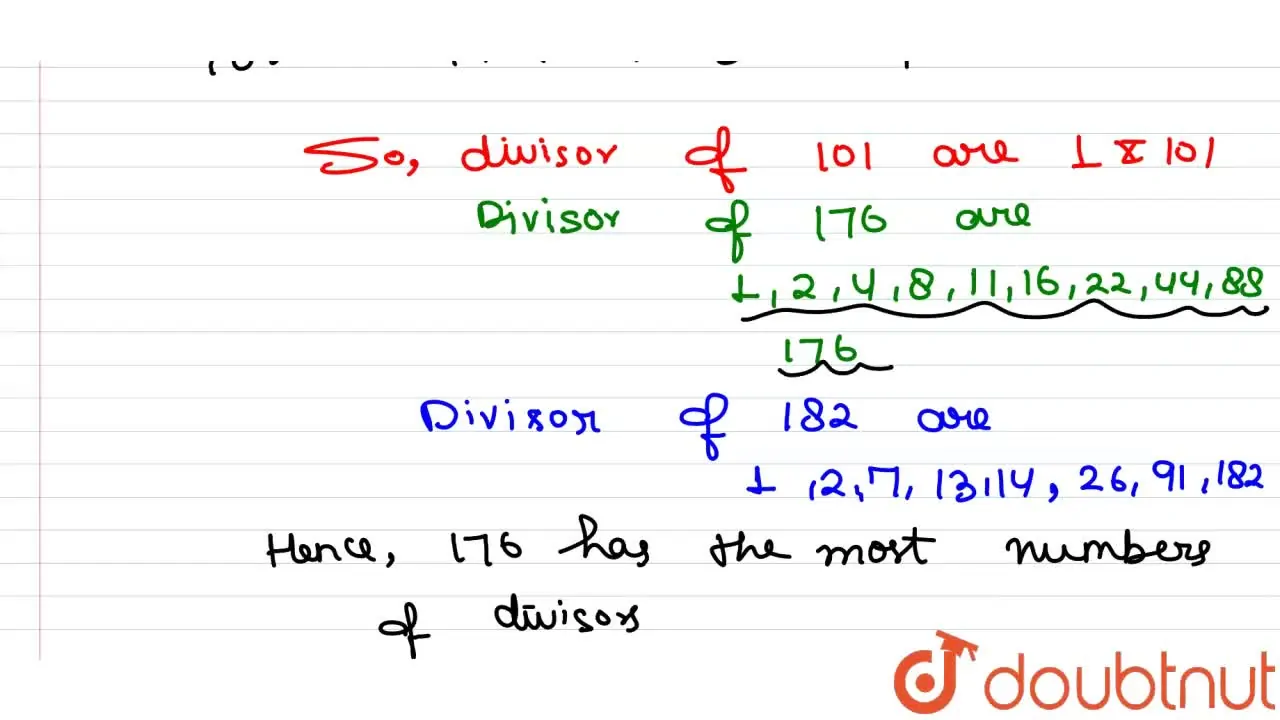 So, divisor of 101 are 1 & 101
Divisor of 176 are
1, 2, 4, 8, 11, 16, 22, 44, 88
176
Divisor of 182 are
1, 2, 7, 13, 14, 26, 91, 182
Hence, 176 has the most numbers
of divisors
doubtnut